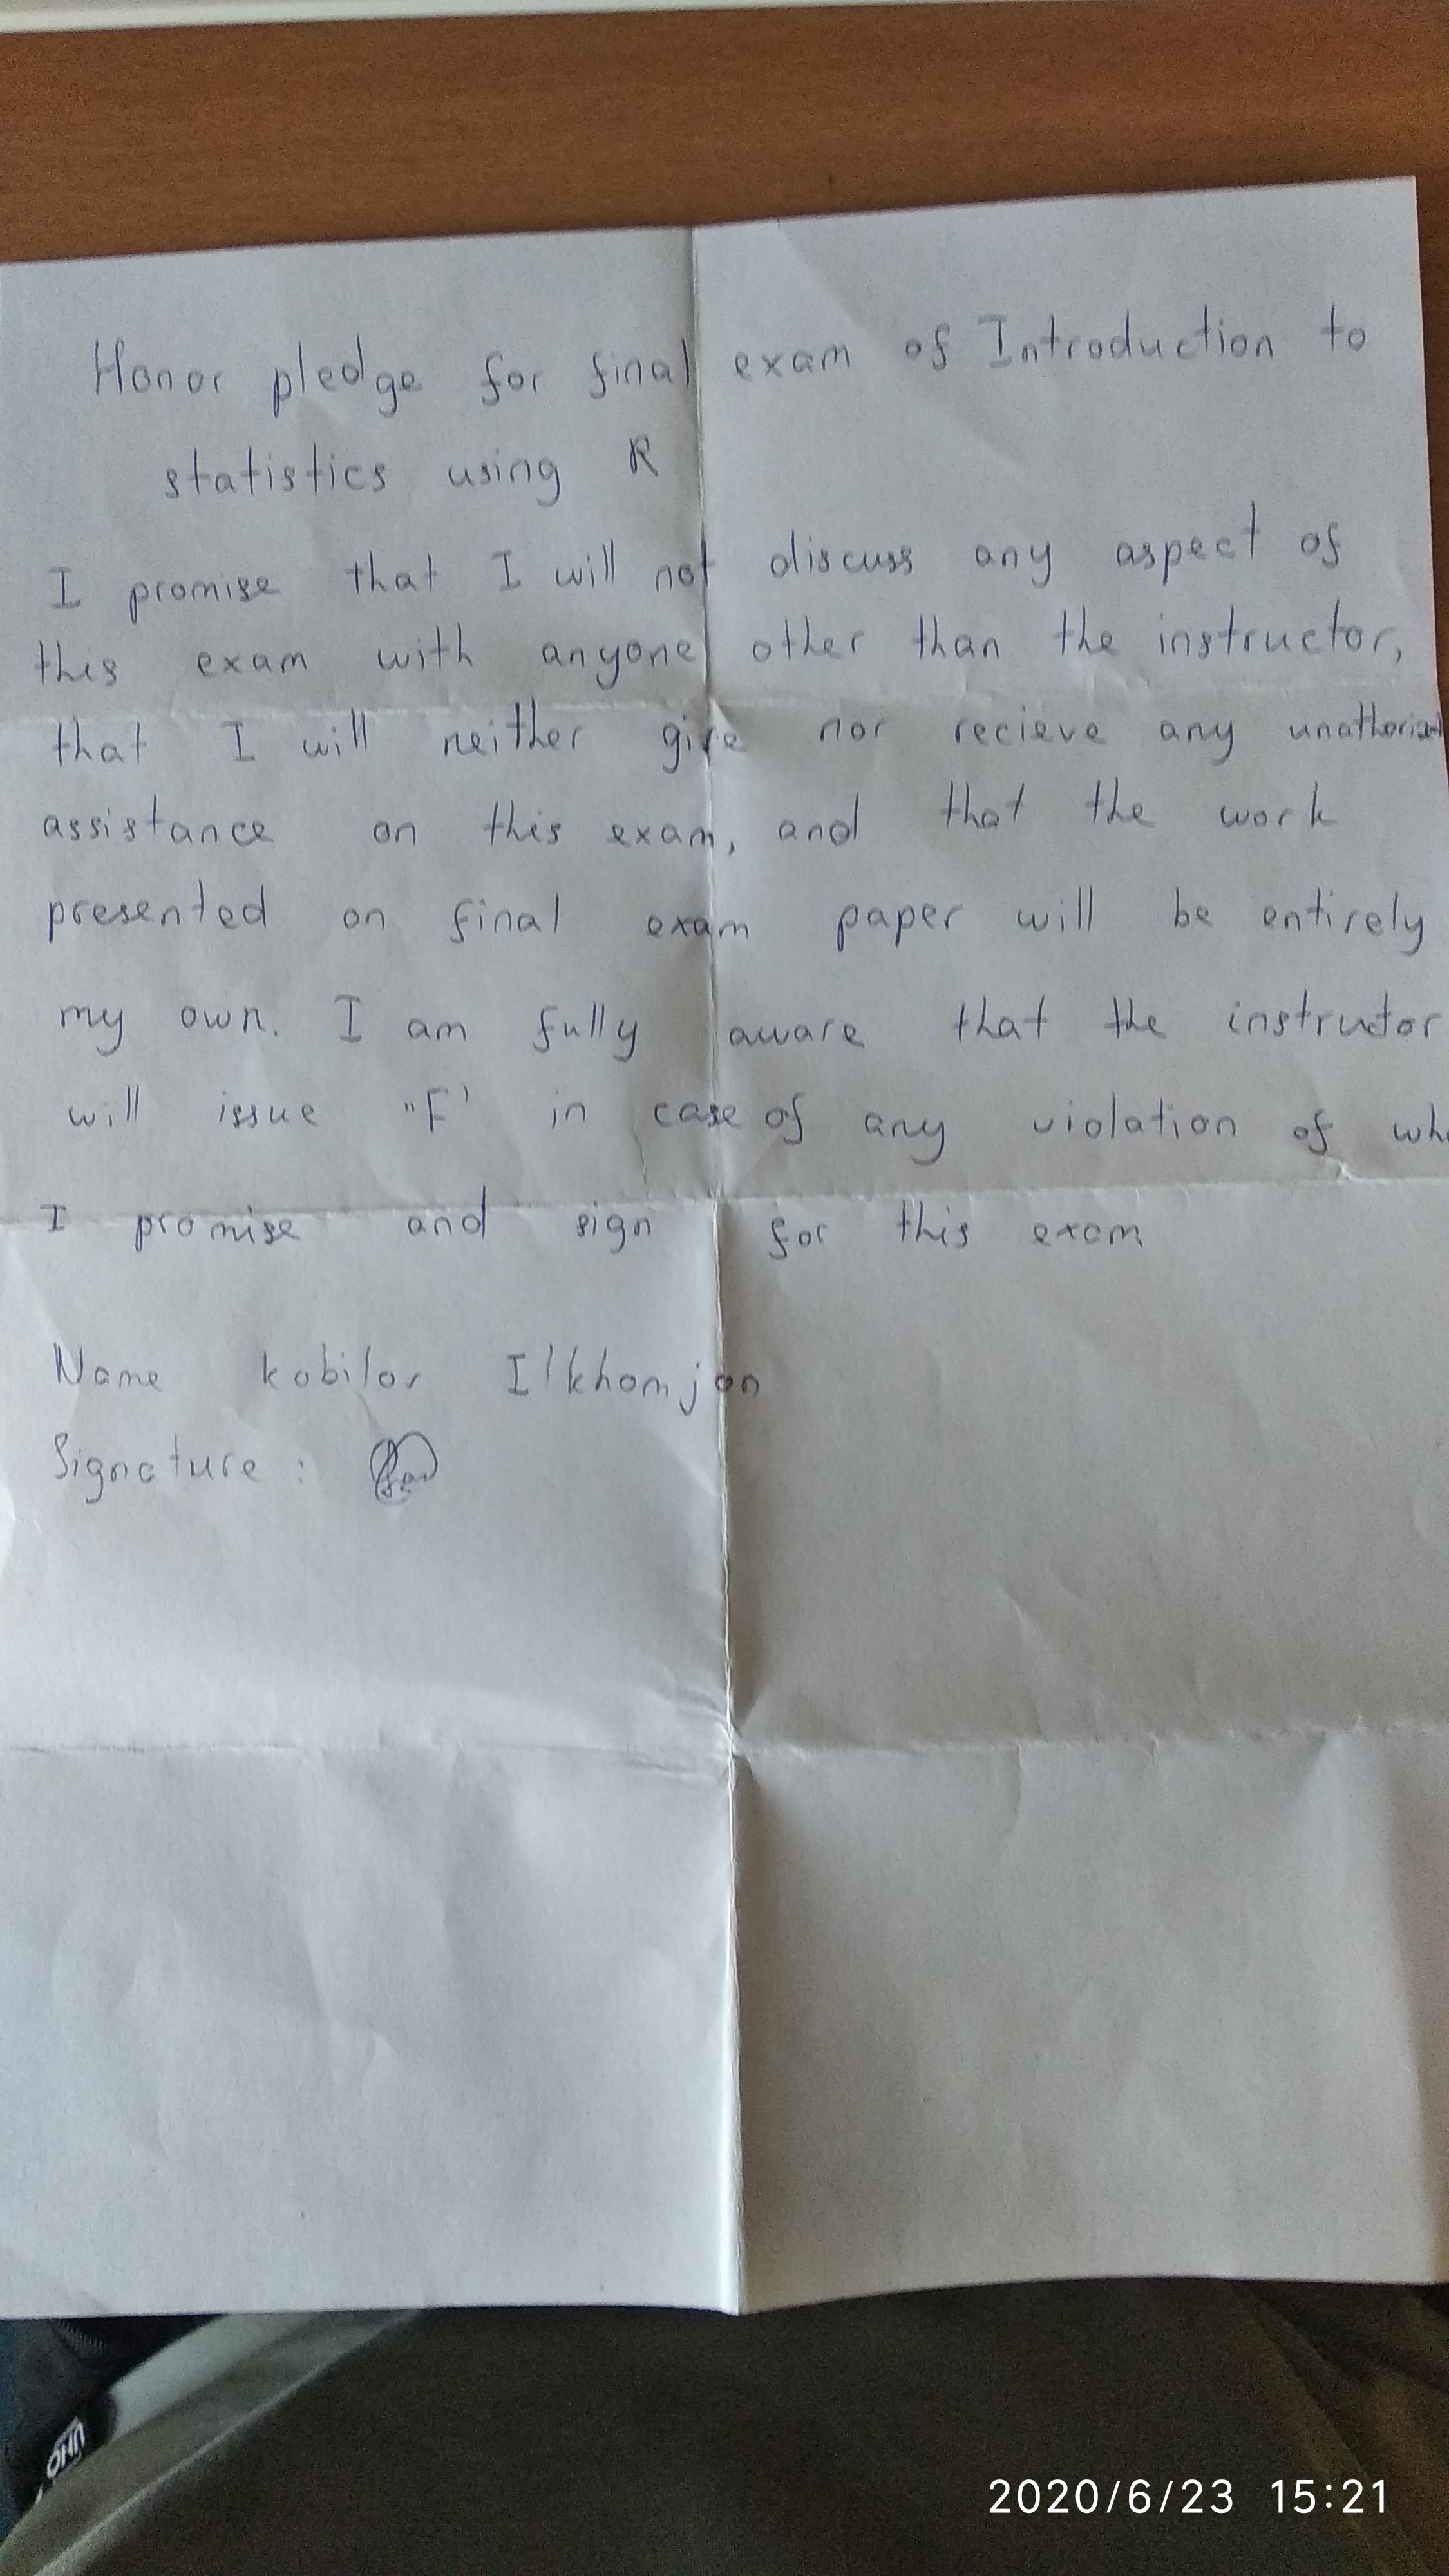 Honor pledge for final exam of Introduction to
statistics using R
I promise that I will not discuss any aspect of
this exam with anyone other than the instructor,
that I will neither give nor recieve any
assistance on this exam, and that the work
presented on final exam paper will be entirely
my own. I am fully aware that the instructor
will issue "F' in case of any violation of
I promise and sign for this exam
Name Kobilov Ilkhomjon
Signature:
2020/6/23 15:21